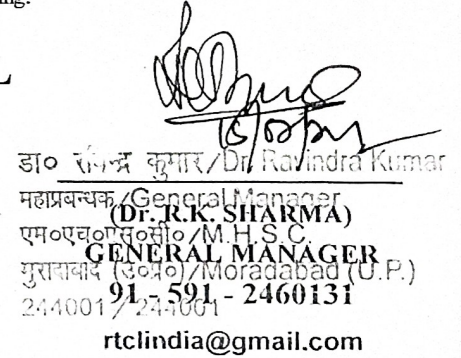 डा० रविन्द्र कुमार/Dr. Ravindra Kumar
महाप्रबन्धक/General Manager
(Dr. R.K. SHARMA)
एम०एच०एस०सी०/M.H.S.C.
GENERAL MANAGER
मुरादाबाद (उ०प्र०)/Moradabad (U.P.)
91 - 591 - 2460131
244001/244001
rtclindia@gmail.com